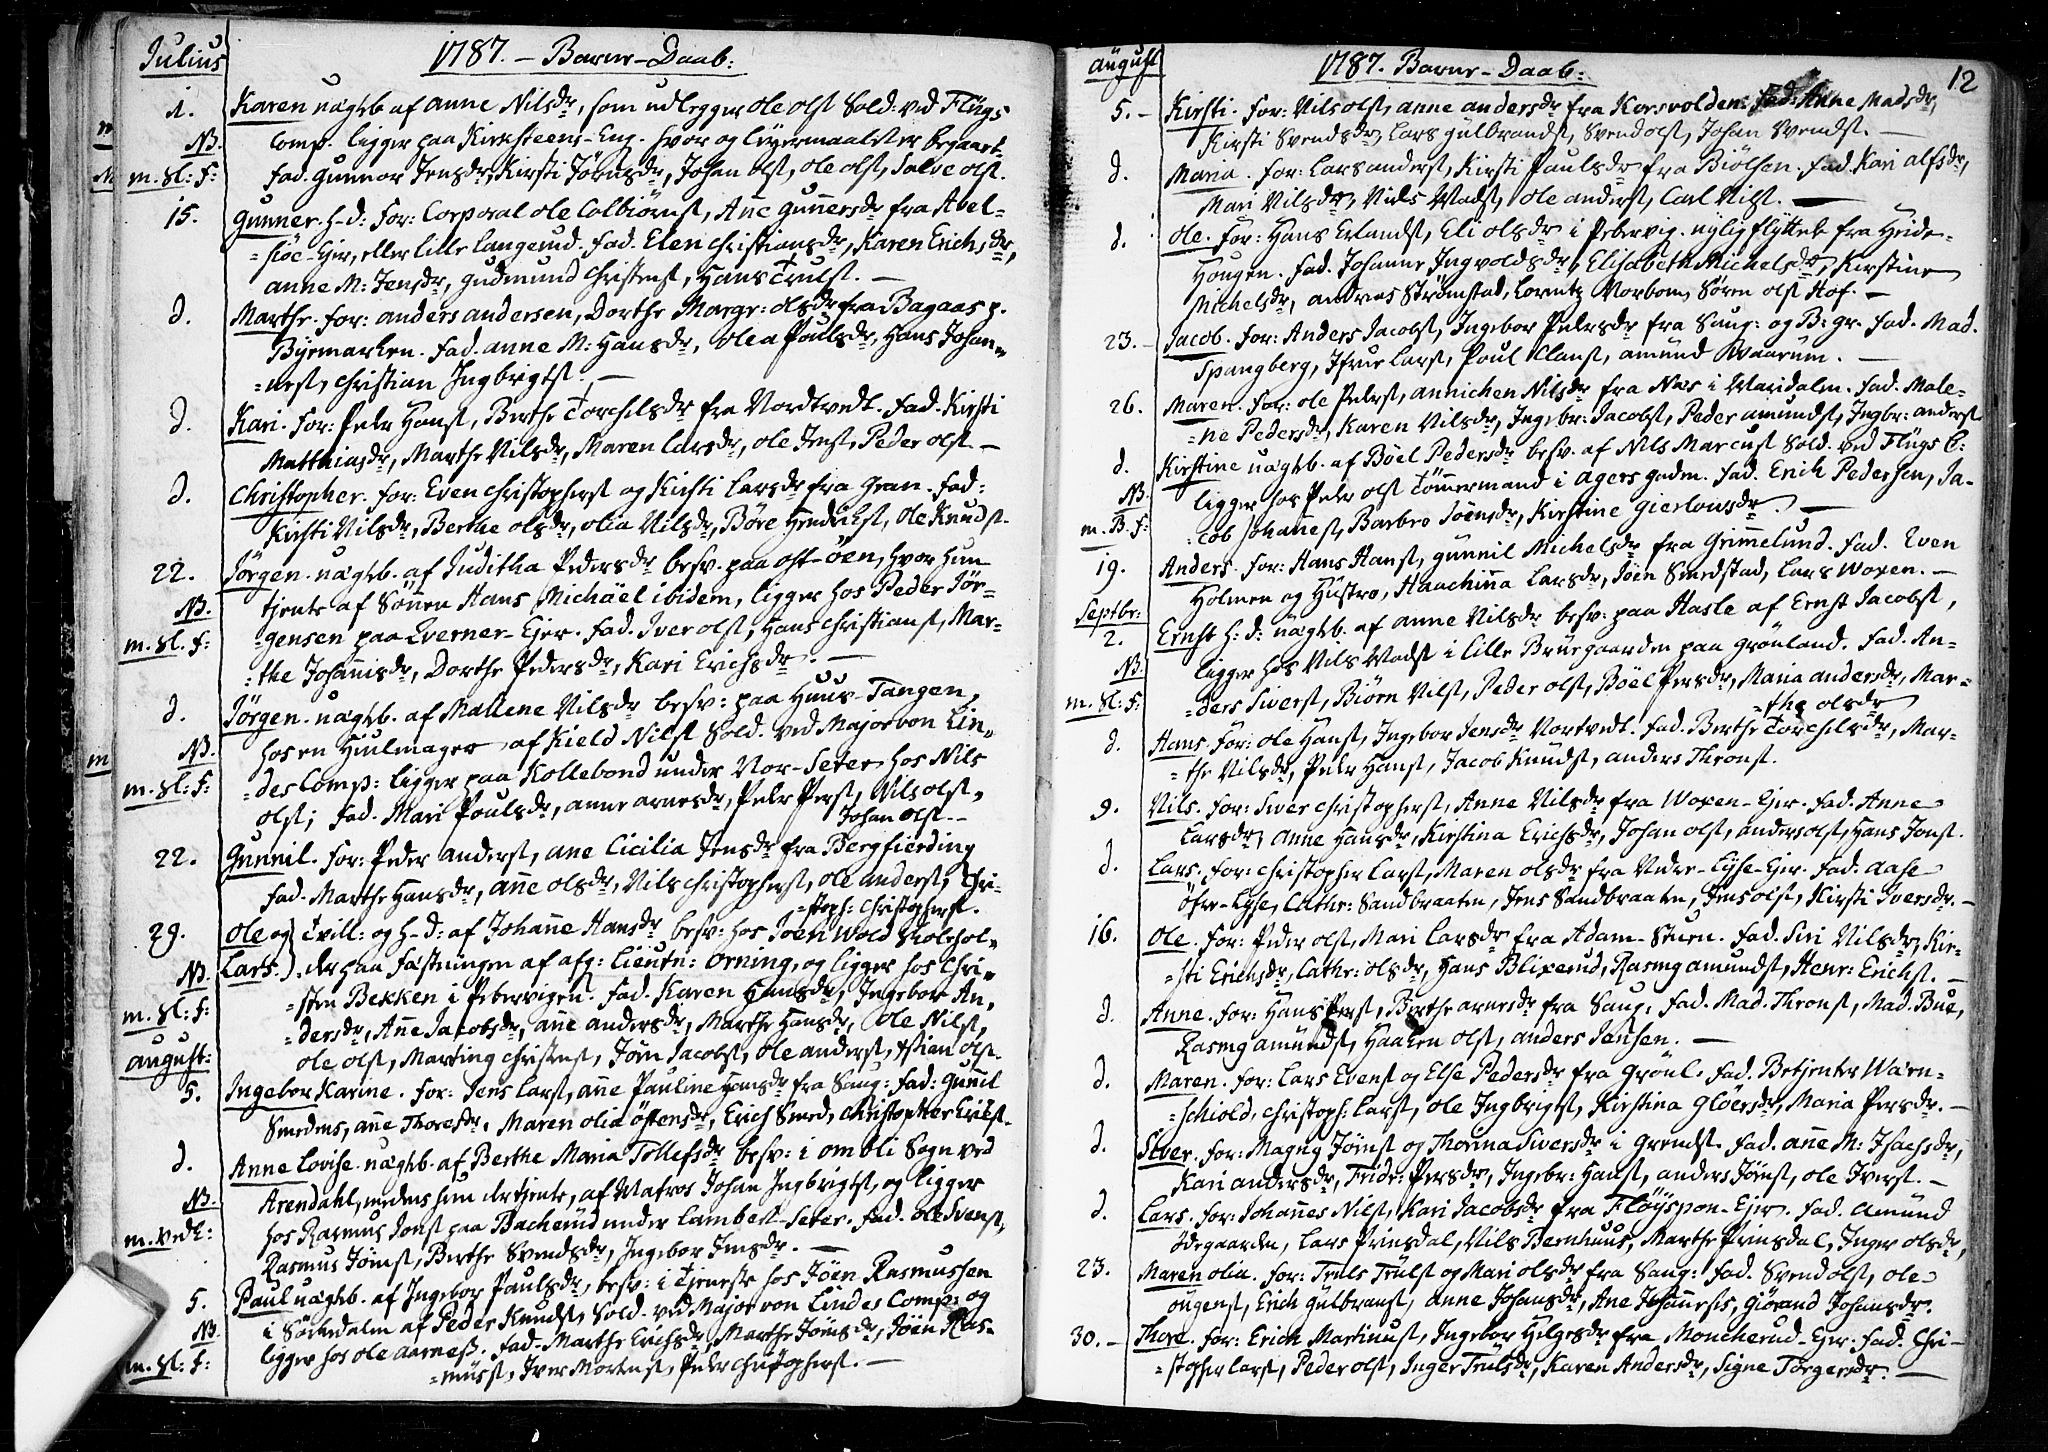 Julius
1787. – Barne-Daab:
1. Karen uægtb. af Anne Nilsdr, som udlegger Ole Olst Sold. ved Flügs
NB. Comp. ligger paa Kirchsteens-Eng. hvor og Leyermaalet er begaaet.
m. Sl: F: Fad. Gunnor Jensdr, Kirsti Jörnsdr, Johan Olst, Ole Olst, Salve Olst.
15. Gunner. h-d: For: Corporal Ole Colbiörnst, Ane Gunnersdr fra Abel-
=siöe-Ejer, eller Lille Langerud. Fad. Elen Christiansdr, Karen Erichsdr,
Anne M: Jensdr, Gudmund Christenst, Hans Trulst. –
d. Marthe. For: Anders Andersen, Dorthe Margr: Olsdr fra Bagaas p.
Byemarken. Fad. Anne M: Hansdr, Olea Poulsdr, Hans Johan=
=nest, Christian Ingbrigtst. –
d. Kari. For: Peder Hanst, Berthe Torchilsdr fra Nordtvedt. Fad. Kirsti
Matthiasdr, Marthe Nilsdr, Maren Larsdr, Ole Jenst, Peder Olst –
d. Christopher. For: Even Christopherst og Kirsti Larsdr fra Gran. Fad:
Kirsti Nilsdr, Berthe Olsdr, Olia Nilsdr, Böre Hendrichst, Ole Knudst.
22. Jörgen. uægtb. af Juditha Pedersdr besv. paa Ost-öen, hvor hun
NB. tjente af Sönnen Hans Michäel ibidem, ligger hos Peder Jör=
m. Sl. F: =gensen paa Qverner-Ejer. Fad. Iver Olst, Hans Christianst, Mar=
=the Johanisdr, Dorthe Pedersdr, Kari Erichsdr. –
d. Jörgen. uægtb. af Mallene Nilsdr besv: paa Huus-Tangen,
NB. hos en Hiulmager af Kield Nilst Sold. ved Major von Lin=
m. Sl: F: =des Comp: ligger paa Kollebond under Nor-Seter hos Nils
Olst; Fad. Mari Poulsdr, Anne Arnesdr, Peder Perst, Nils Olst,
Johan Olst –
22. Gunnil. For: Peder Anderst, Ane Cicilia Jensdr fra Bergfierding
Fad. Marthe Hansdr, Anne Olsdr, Nils Christopherst, Ole Anderst, Chri-
=stoph: Christopherst.
29. Ole og) Tvill: og h-d: af Johanne Hansdr besv: hos Joen Wold Skolehol=
NB. Lars.) der paa Fæstningen af afg: Lieutn: Orning, og ligger hos Chri=
m. Sl: F: =sten Bekken i Pebervigen. Fad. Karen Hansdr, Ingebor An=
=dersdr, Ane Jacobsdr, Ane Andersdr, Marthe Hansdr, Ole Nilst,
Ole Olst, Marting Christenst, Jörn Jacobst, Ole Anderst, Xstian Olst.
August:
5. Ingebor Karine. For: Jens Larst, Ane Pauline Hansdr fra Saug: Fad: Gunnil
Smedens, Ane Thoresdr, Maren Olia Östensdr, Erich Smed, Christopher Erichst.
d. Anne Lovise. uægtb. af Berthe Maria Tollefsdr besv: i Ombli Sogn ved
NB. Arendahl, medens hun der tjente, af Matros Johan Ingbrigtst, og ligger
m. Vedl: hos Rasmus Jonst paa Bacherud under Lambest-Seter. Fad. Ole Svenst,
Rasmus Jörnst, Berthe Svendsdr, Ingebor Jensdr. –
5. Paul uægtb. af Ingebor Paulsdr, besv: i Tjeneste hos Jöen Rasmussen
NB. i Sörkedalen af Peder Knudst, Sold. ved Major von Lindes Comp: og
m. Sl: F: ligger hos Ole Aarness. Fad. Marthe Erichsdr, Marthe Jörnsdr, Jöen Ras-
=musst, Iver Mortenst, Peder Christopherst. –

August
1787. Barne-Daab:
12
5. – Kirsti. For: Nils Olst, Anne Andersdr fra Korsvolden. Fad: Anne Madsdr,
Kirsti Svendsdr, Lars Gulbrandst, Svend Olst, Johan Svendst. –
d. Maria. For: Lars Anderst, Kirsti Paulsdr fra Biölsen. Fad. Kari Alfsdr,
Mari Nilsdr, Niels Madst, Ole Anderst, Carl Nilst. –
d. Ole. For: Hans Erlandst, Eli Olsdr i Pebervig. nylig flyttet fra Heide-
Hougen. Fad. Johanne Ingvoldsdr, Elisabeth Michelsdr, Kirstine
Michelsdr, Andreas Strömstad, Lorentz Norbom, Sören Olst Hof. –
23. – Jacob. For: Anders Jacobst, Ingebor Pedersdr fra Saug: og B: gr. Fad. Mad.
Spangberg, Jfrue Larst, Poul Clanst, Amund Waarum. –
26. Maren. For: Ole Pederst, Annichen Nilsdr fra Næs i Maridalen. Fad. Male-
=ne Pedersdr, Karen Nilsdr, Ingebr: Jacobst, Peder Amundst, Ingbr: Anderst
d. Kirstine uægtb. af Böel Pedersdr besv. af Nils Marcust Sold. ved Flügs C:
NB. ligger hos Peder Olst Tömmermand i Agers gaden. Fad. Erich Pedersen, Ja-
m. B. F: =cob Johanest, Barbro Jöensdr, Kirstine Gierlousdr. –
19. Anders. For: Hans Hanst, Gunnil Michelsdr fra Grimelund. Fad. Even
Holmen og Hustro, Haachina Larsdr, Jöen Smedstad, Lars Woxen. –
Septbr:
2. Ernst h: d: uægtb. af Anne Nilsdr besv: paa Hasle af Ernst Jacobst,
NB. ligger hos Nils Madst i Lille Bruegaarden paa Grönland. Fad. An-
m. Sl: F: =ders Siverst, Biörn Nilst, Peder Olst, Böel Persdr, Maria Andersdr, Mar=
=the Olsdr
d. Hans. For: Ole Hanst, Ingebor Jensdr Nortvedt. Fad. Berthe Torchilsdr, Mar-
=the Nilsdr, Peder Hanst, Jacob Knudst, Anders Thronst.
9. Nils. For: Siver Christopherst, Anne Nilsdr fra Woxen-Ejer. Fad. Anne
Larsdr, Anne Hansdr, Kirstina Erichsdr, Johan Olst, Anders Olst, Hans Jonst.
d. Lars. For: Christopher Larst, Maren Olsdr fra Nedre-Lyse-Ejer. Fad. Aase
Öfre-Lyse, Cathr: Sandbraaten, Jens Sandbraaten, Jens Olst, Kirsti Iversdr. –
16. Ole. For: Peder Olst, Mari Larsdr fra Adam-Stuen. Fad. Siri Nilsdr, Kir-
=sti Erichsdr, Cathr: Olsdr, Hans Blixerud, Rasmg Amundst, Henr: Erichst. –
d. Anne. For: Hans Perst, Berthe Arnesdr fra Saug: Fad. Mad. Thronst, Mad. Bue,
Rasmg Amundst, Haaken Olst, Anders Jensen. –
d. Maren. For: Lars Evenst og Else Pedersdr fra Grönl. Fad. Betjenter Wærn-
=schiold, Christoph: Larst, Ole Ingbrigtst, Kirstina Glöersdr, Maria Persdr. –
d. Siver. For: Magnus Jörnst og Thorina Siversdr i Grendst. Fad. Ane M: Isachsdr,
Kari Andersdr, Fridr: Persdr, Ingebr: Hanst, Anders Jörnst, Ole Iverst. –
d. Lars. For: Johanes Nilst, Kari Jacobsdr fra Flöyspon-Ejer. Fad. Amund
Ödegaarden, Lars Prinsdal, Nils Bernhuus, Marthe Prinsdal, Inger Olsdr,
23. Maren Olia. For: Truls Trulst og Mari Olsdr fra Saug: Fad. Svend Olst, Ole
Ougenst, Erich Gulbranst, Anne Johansdr, Ane Johannesis, Giörand Johansdr.
30. – Thore. For: Erich Martinust, Ingebor Helgesdr fra Moncherud-Ejer. Fad. Chri-
=stopher Larst, Peder Olst, Inger Trulsdr, Karen Andersdr, Signe Torgersdr. –